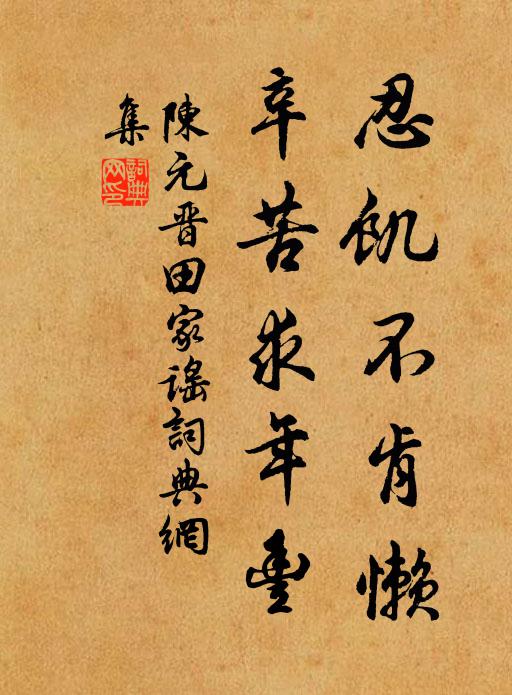 忍飢不肯懶
辛苦求年豐
陳元晋田家謠詞典網
集
詞典網印